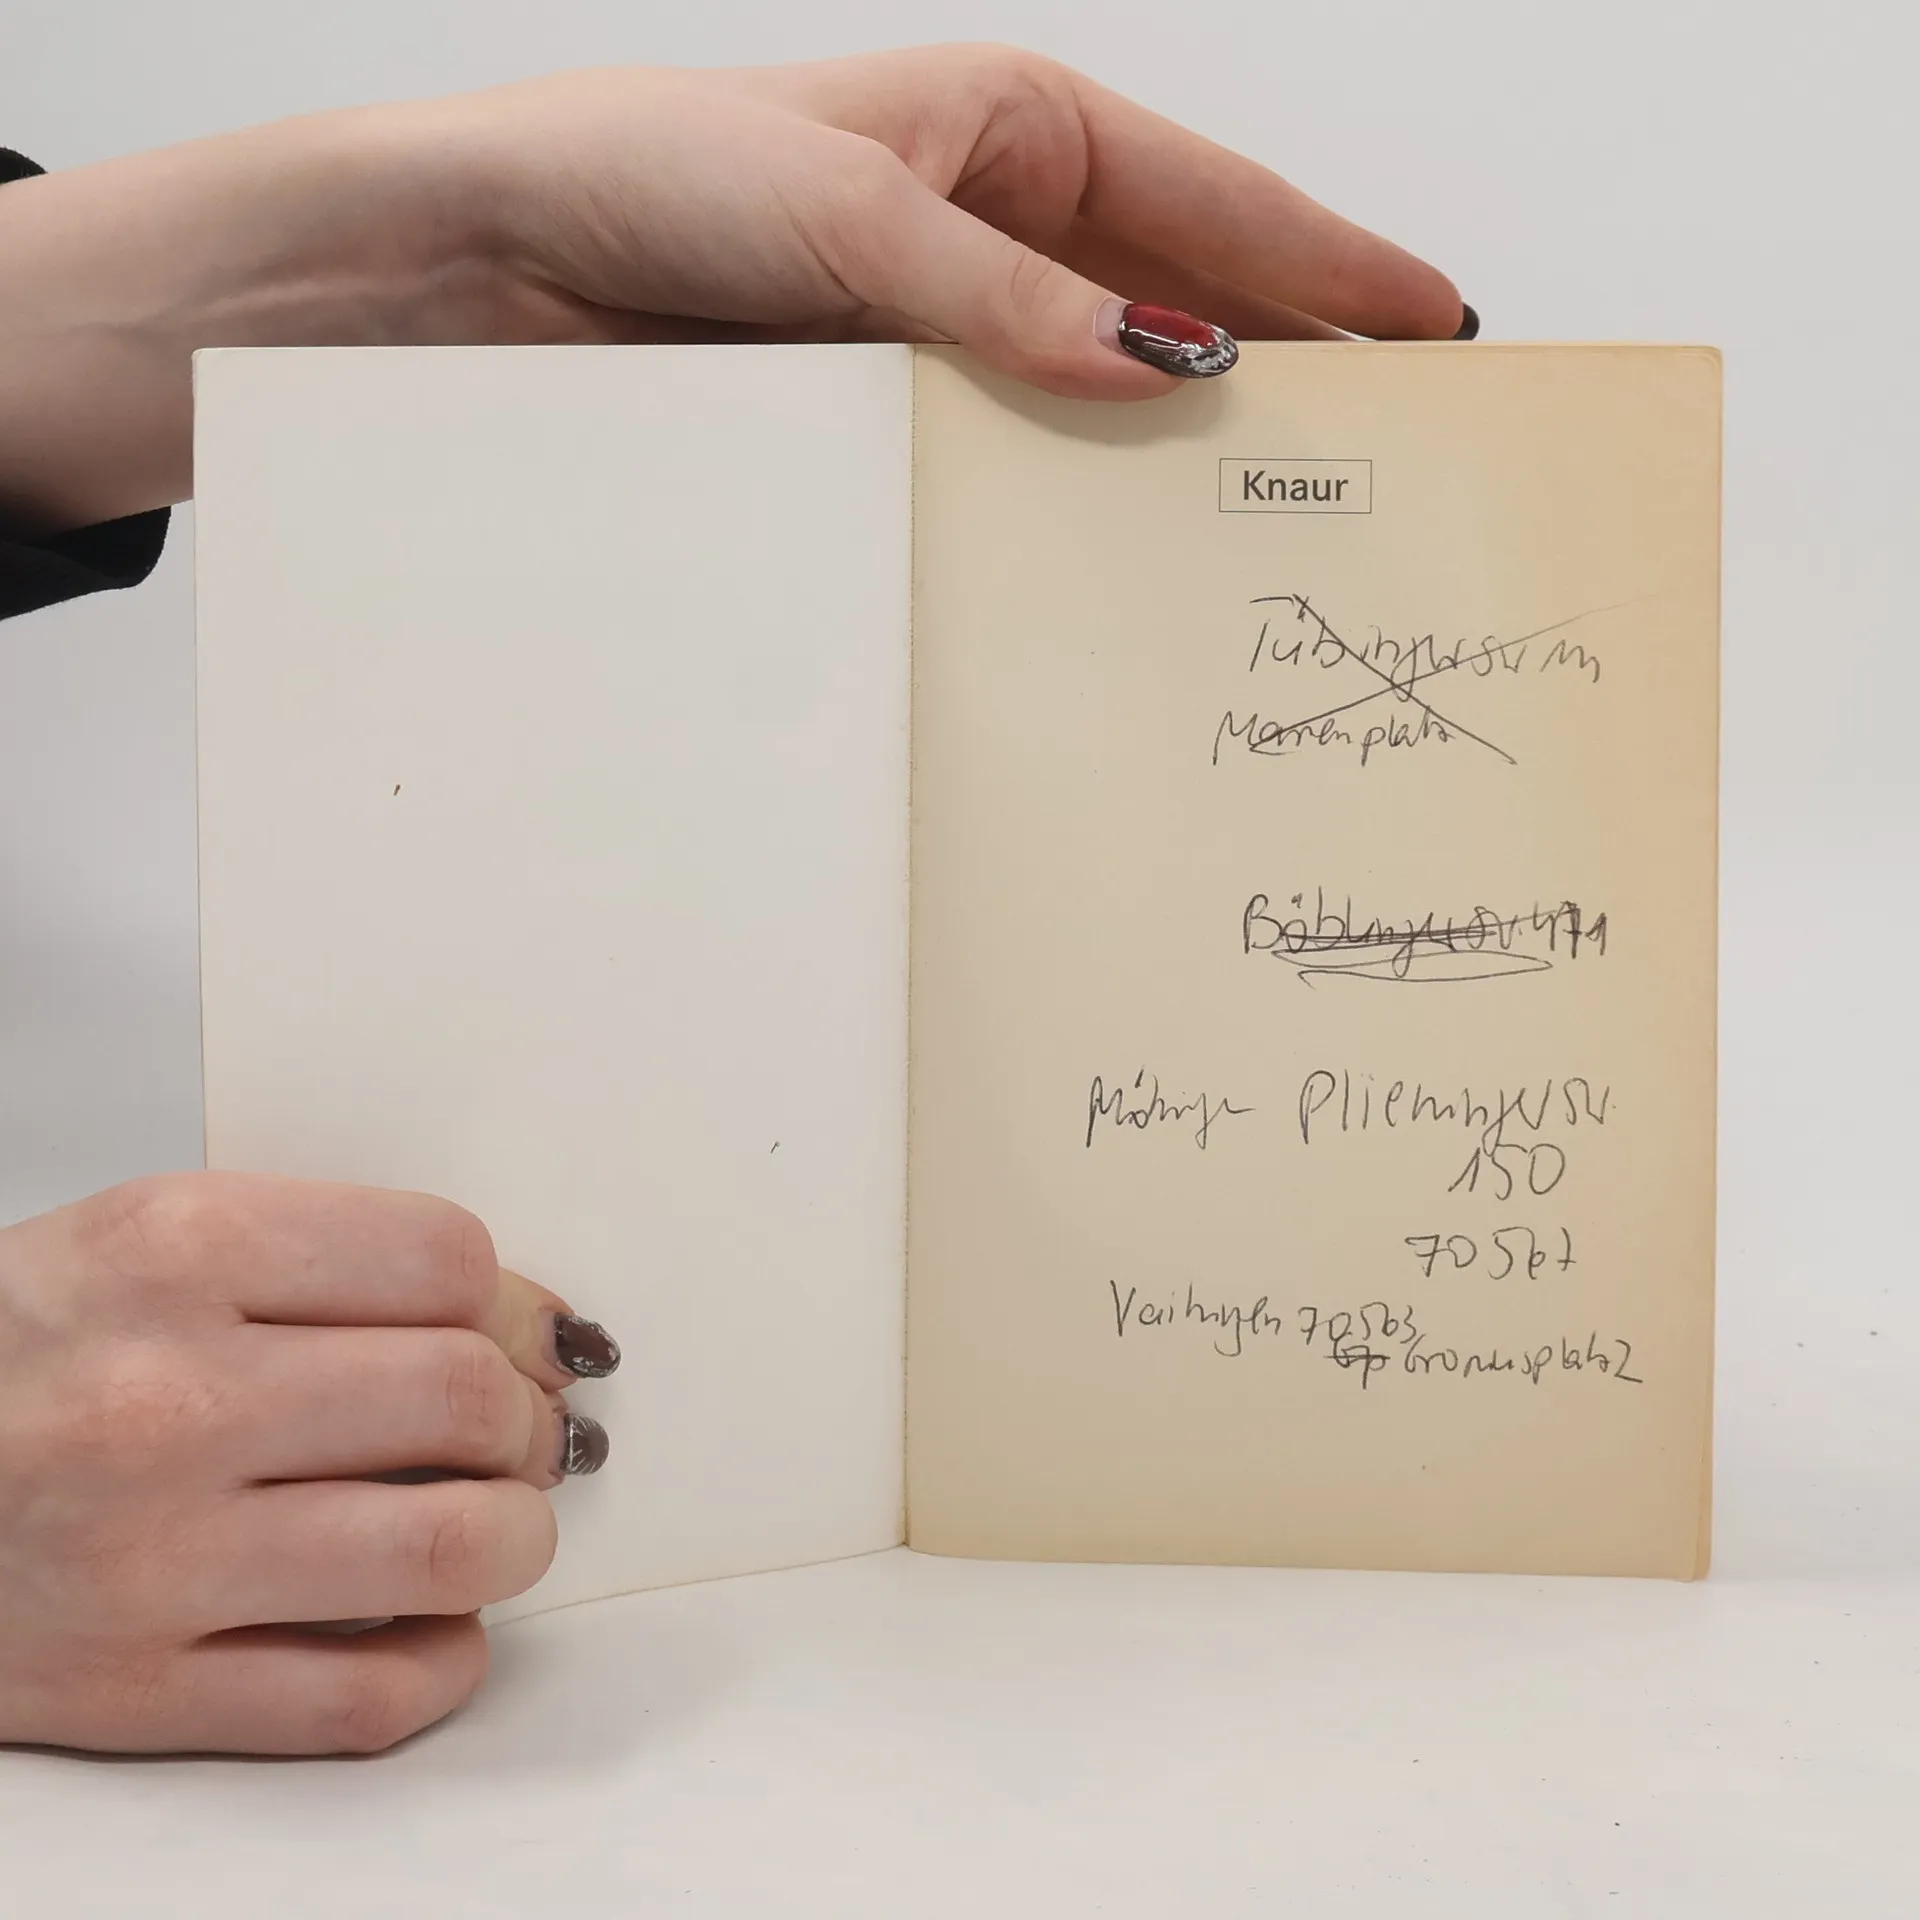 Knaur
Tübingerstr
Marienplatz
Böblingerstr. 471
Möhringen Plieningerstr.
150
70567
Vaihingen 70563
Gp Gromusplatz 2